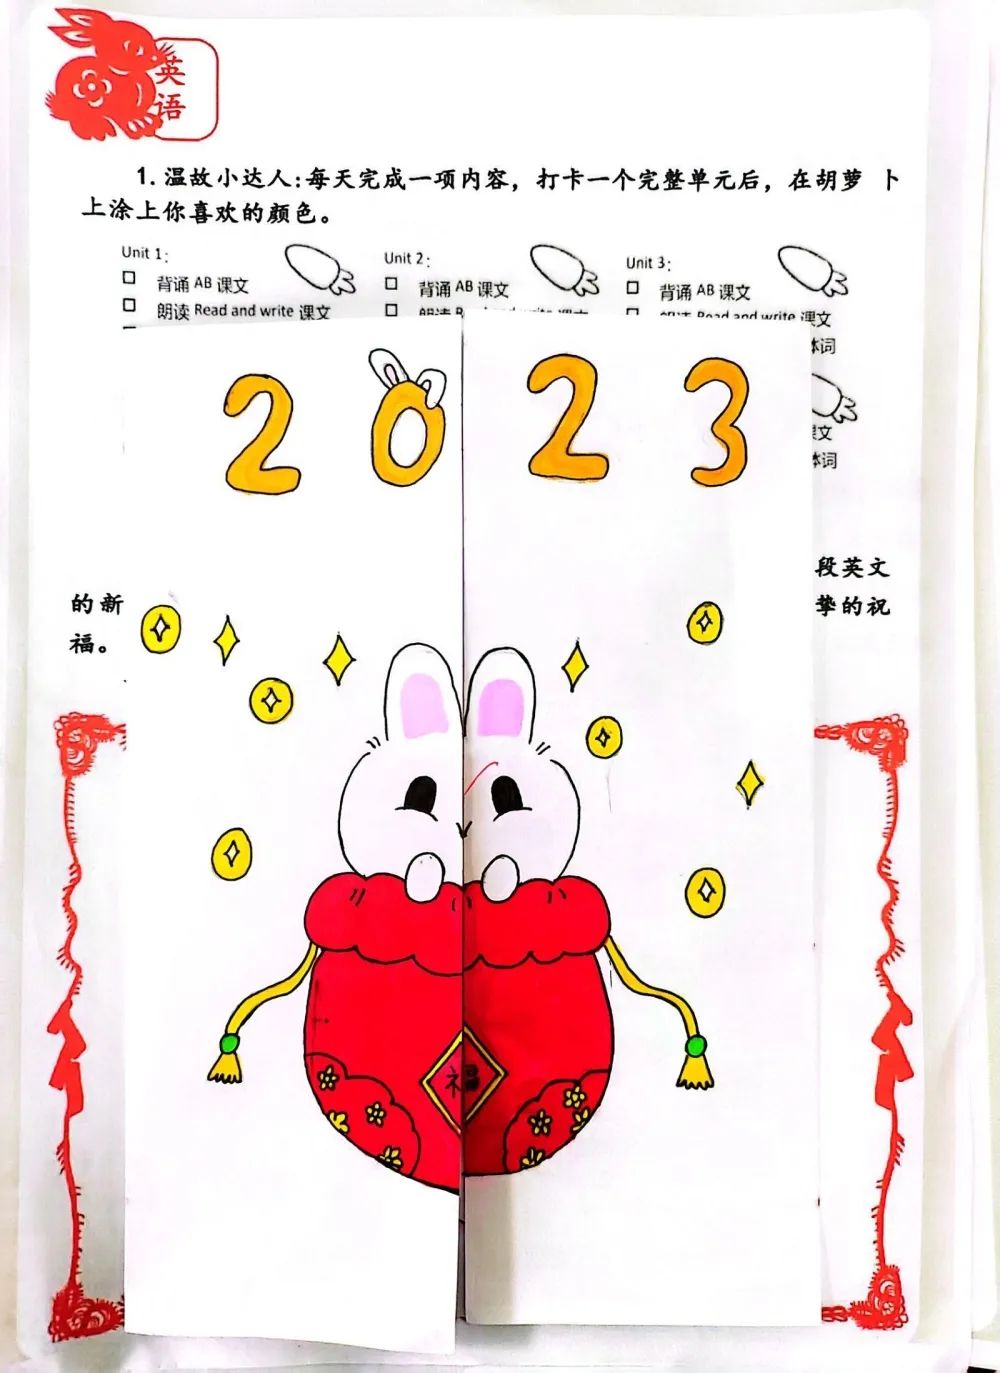 英
语
1.温故小达人:每天完成一项内容，打卡一个完整单元后，在胡萝 卜
上涂上你喜欢的颜色。
Unit 1:
Unit 2:
Unit 3:
□ 背诵 AB 课文
□ 背诵 AB 课文
□ 背诵 AB 课文
□ 朗读 Read and write 课文
□ 朗读 Read and write 课文
□ 朗读 Read and write 课文
体词
2023
课文
体词
段英文
的新
挚的祝
福。
福